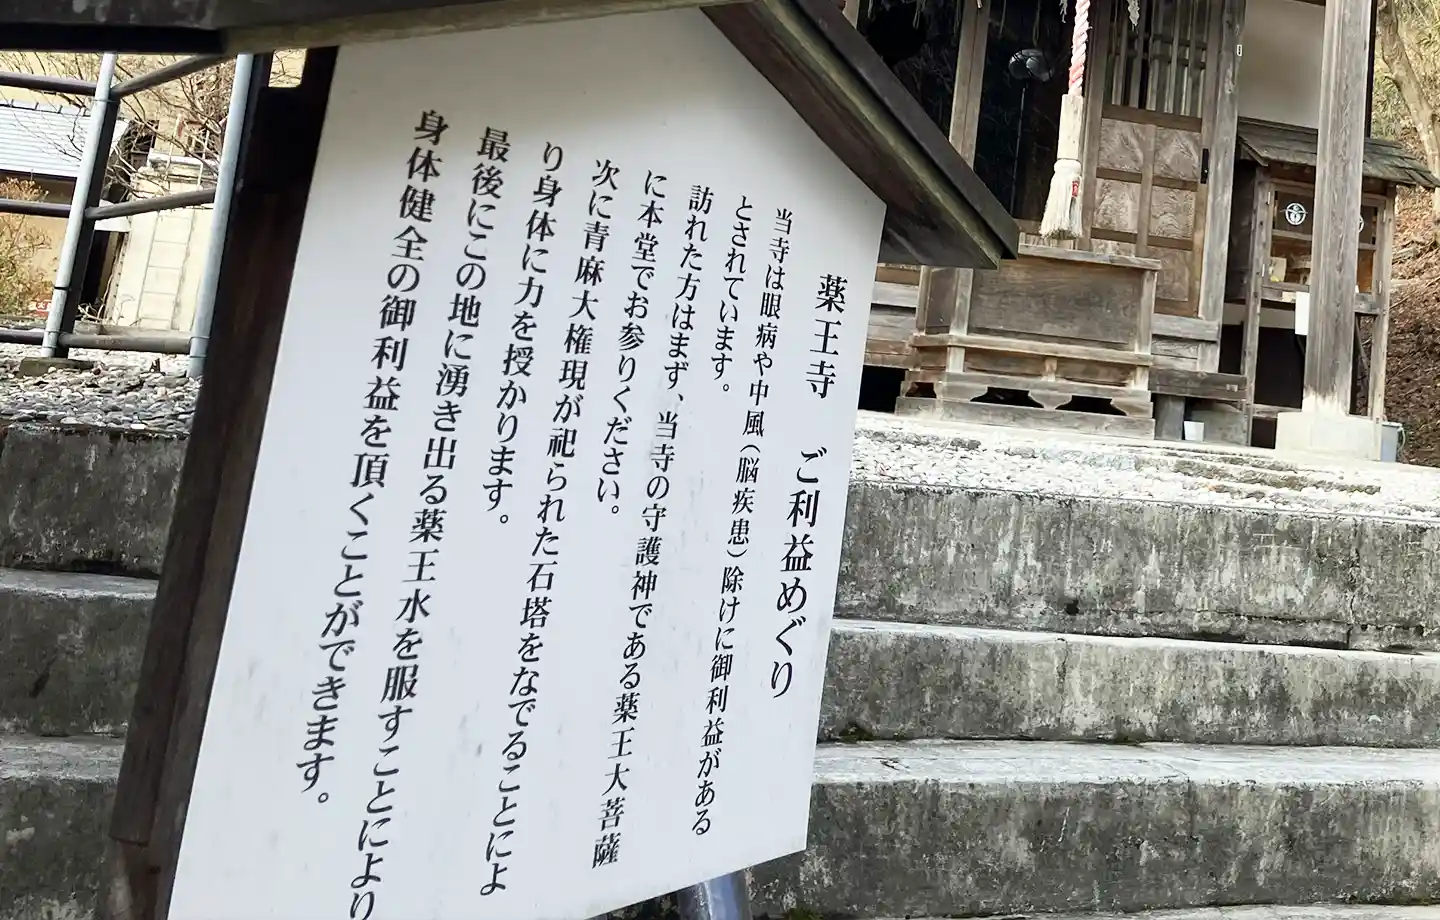 薬王寺　ご利益めぐり
当寺は眼病や中風（脳疾患）除けに御利益がある
とされています。
訪れた方はまず、当寺の守護神である薬王大菩薩
に本堂でお参りください。
次に青麻大権現が祀られた石塔をなでることによ
り身体に力を授かります。
最後にこの地に湧き出る薬王水を服すことにより
身体健全の御利益を頂くことができます。